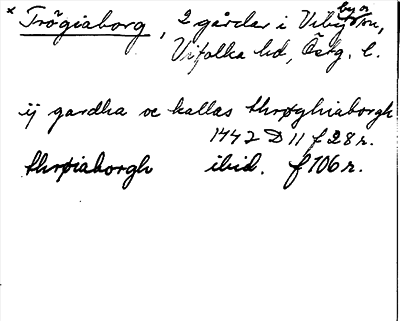 × Trögiaborg, 2 gårdar i Viby by o sn,
Vifolka hd, Östg. l.
ij gardha oc kallas thrøghiaborgh
1442 D 11 f 28 r.
thrøiaborgh ibid. f 106 r.